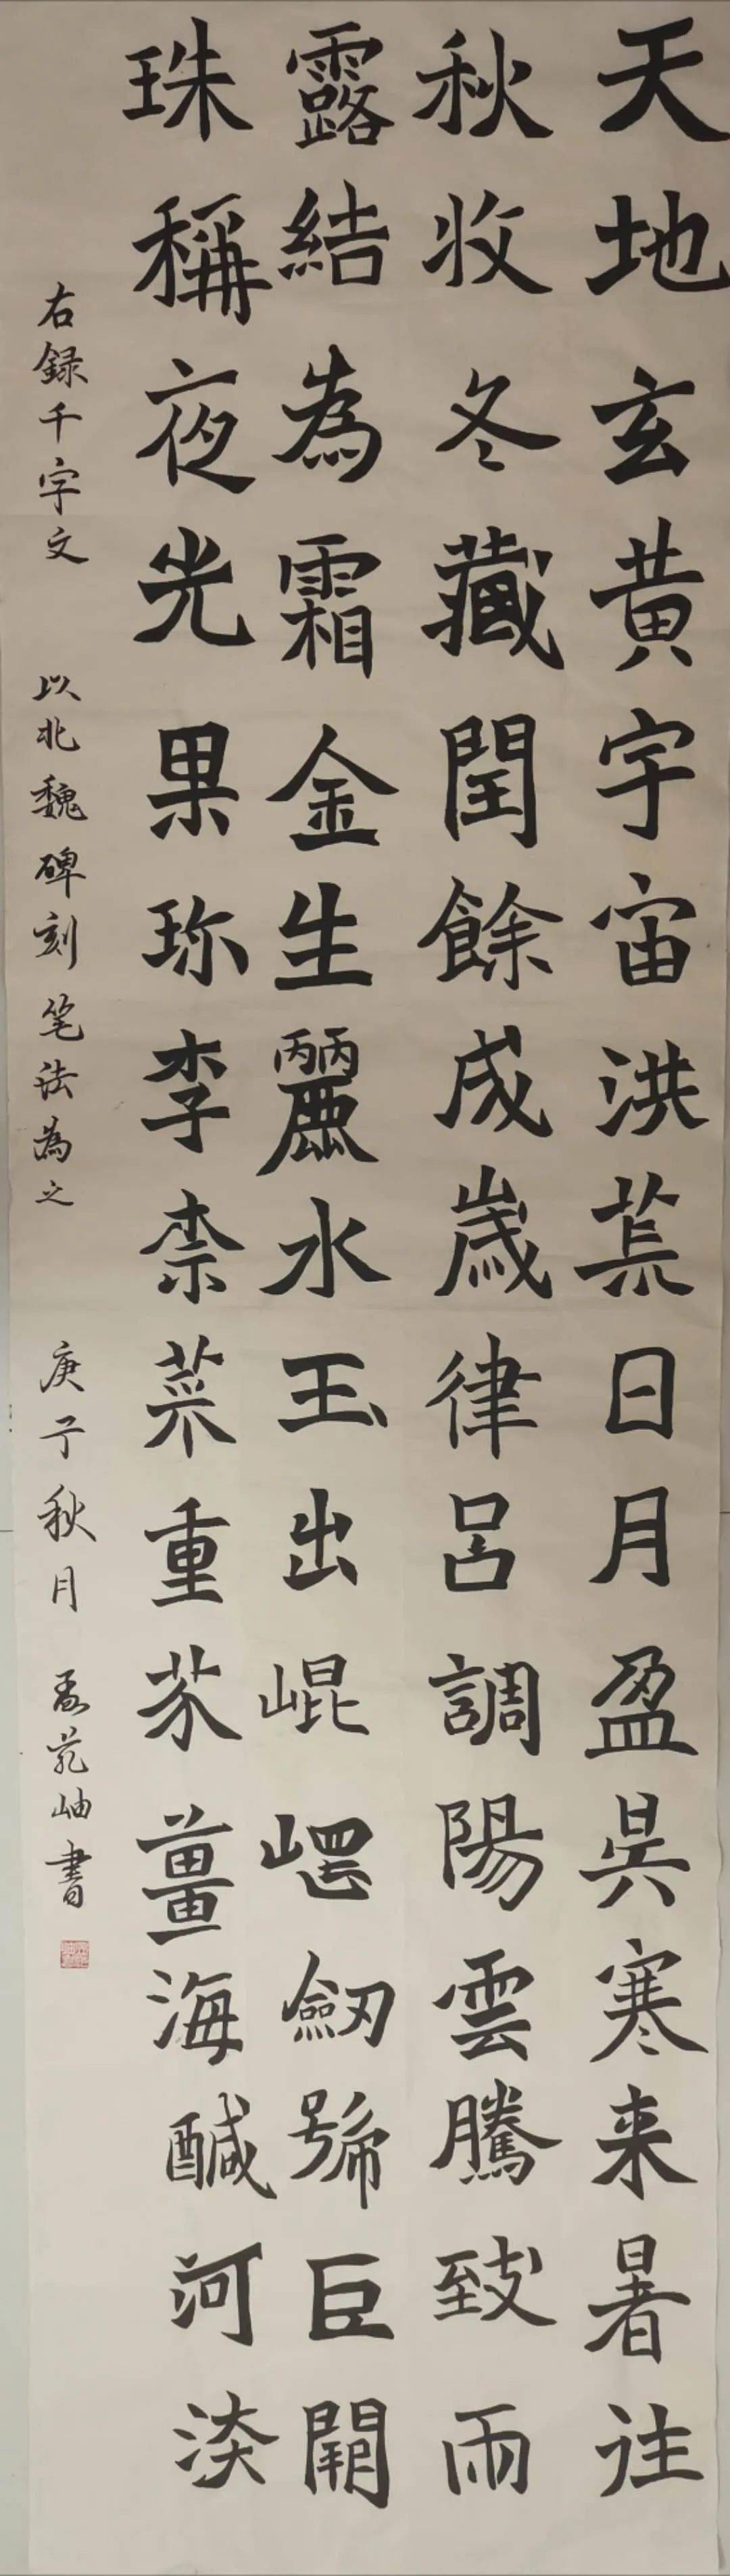 天地玄黄宇宙洪荒日月盈昃寒来暑往
秋收冬藏閏餘成歲律呂調陽雲騰致雨
露結為霜金生麗水玉出崐崗劒號巨闕
珠稱夜光果珎李柰菜重芥薑海醎河淡
右録千字文 以北魏碑刻笔法為之 庚子秋月 書